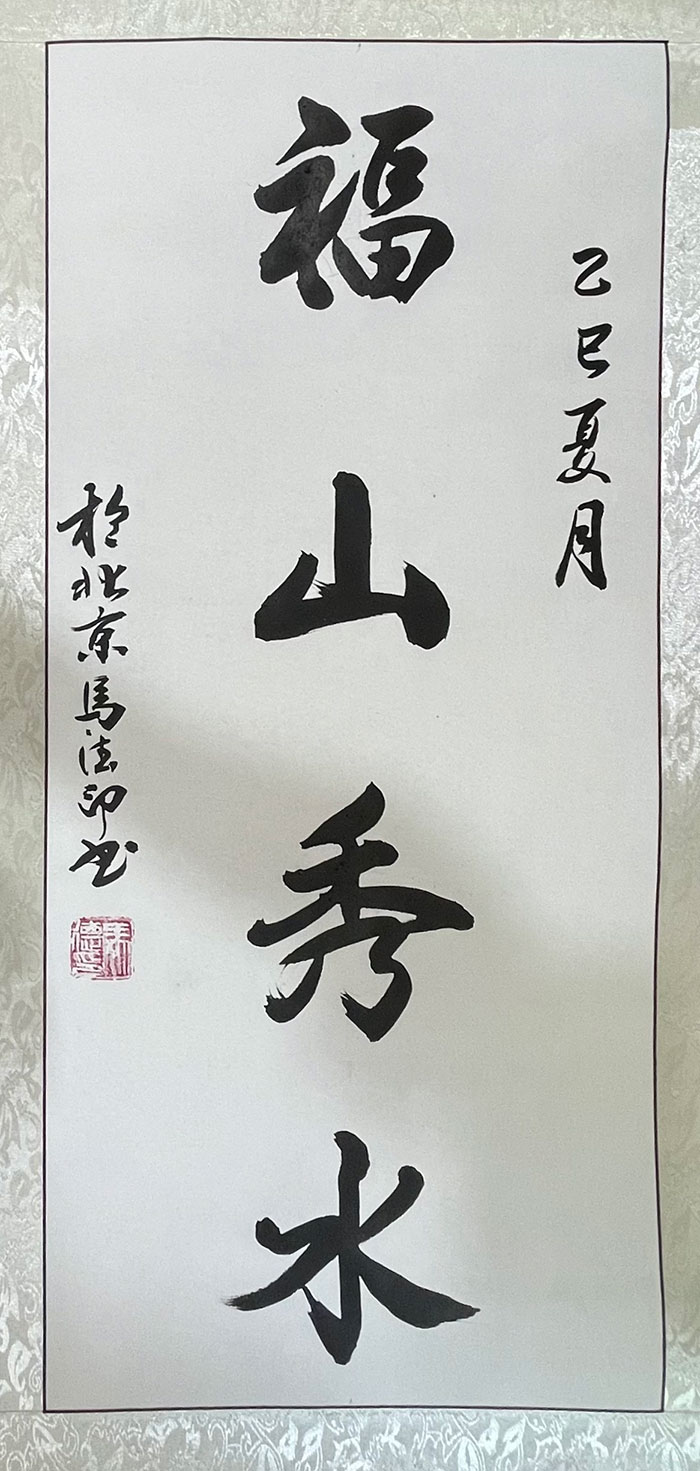 乙巳夏月
福山秀水
於北京馬法印书